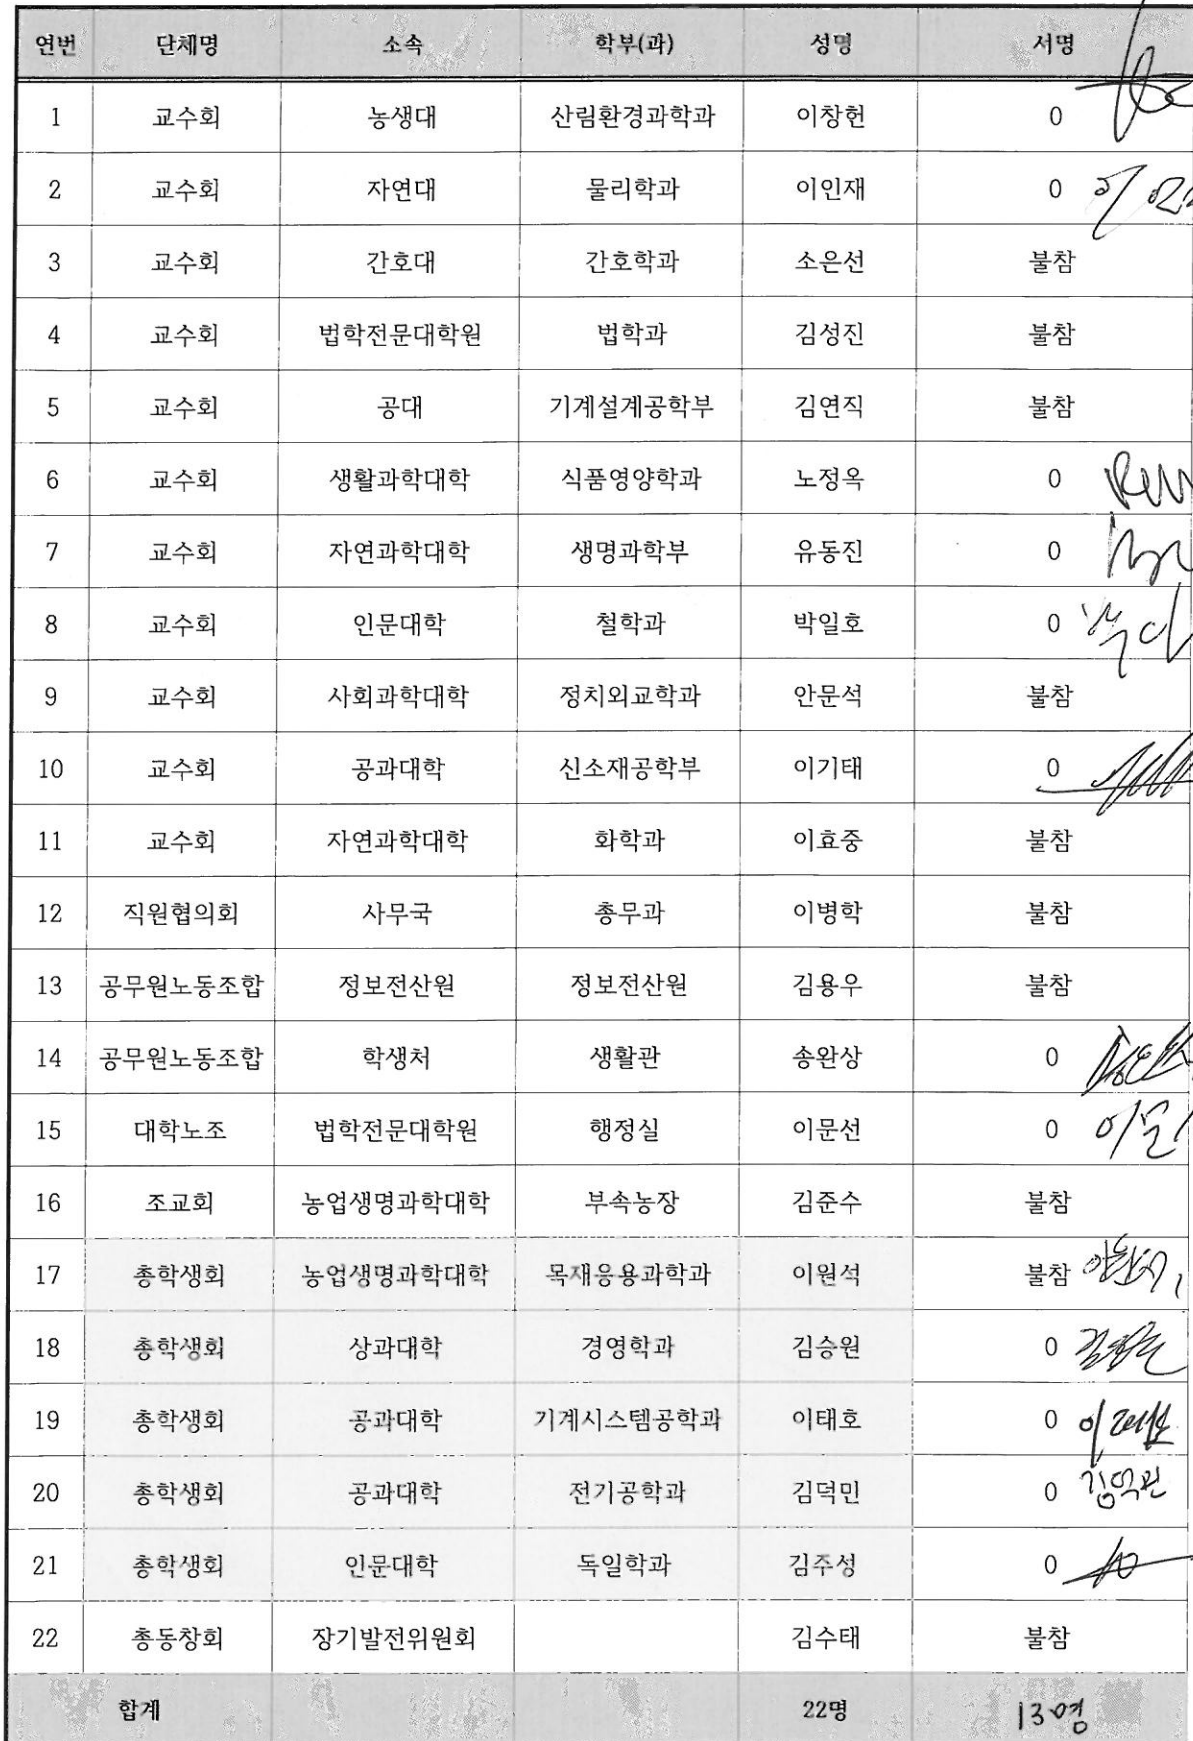 연번 단체명 소속 학부(과) 성명 서명
1 교수회 농생대 산림환경과학과 이창헌 0
2 교수회 자연대 물리학과 이인재 0
3 교수회 간호대 간호학과 소은선 불참
4 교수회 법학전문대학원 법학과 김성진 불참
5 교수회 공대 기계설계공학부 김연직 불참
6 교수회 생활과학대학 식품영양학과 노정옥 0
7 교수회 자연과학대학 생명과학부 유동진 0
8 교수회 인문대학 철학과 박일호 0
9 교수회 사회과학대학 정치외교학과 안문석 불참
10 교수회 공과대학 신소재공학부 이기태 0
11 교수회 자연과학대학 화학과 이효중 불참
12 직원협의회 사무국 총무과 이병학 불참
13 공무원노동조합 정보전산원 정보전산원 김용우 불참
14 공무원노동조합 학생처 생활관 송완상 0
15 대학노조 법학전문대학원 행정실 이문선 0
16 조교회 농업생명과학대학 부속농장 김준수 불참
17 총학생회 농업생명과학대학 목재응용과학과 이원석 불참
18 총학생회 상과대학 경영학과 김승원 0
19 총학생회 공과대학 기계시스템공학과 이태호 0 이태호
20 총학생회 공과대학 전기공학과 김덕민 0 김덕민
21 총학생회 인문대학 독일학과 김주성 0
22 총동창회 장기발전위원회 김수태 불참
합계 22명 13명